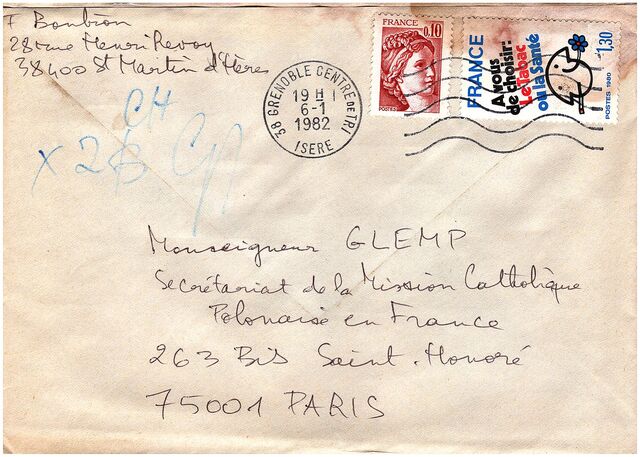 F Boubion
28 rue Henri Revoy
38400 St Martin d'Hères
CH
x 2
38 GRENOBLE CENTRE DE TRI
19 H
6-1
1982
ISERE
FRANCE
0,10
POSTES
FRANCE
A vous
de choisir:
Le Tabac
ou la Santé
1,30
POSTES 1980
Monseigneur GLEMP
Secrétariat de la Mission Catholique
Polonaise en France
263 Bis Saint-Honoré
75001 PARIS